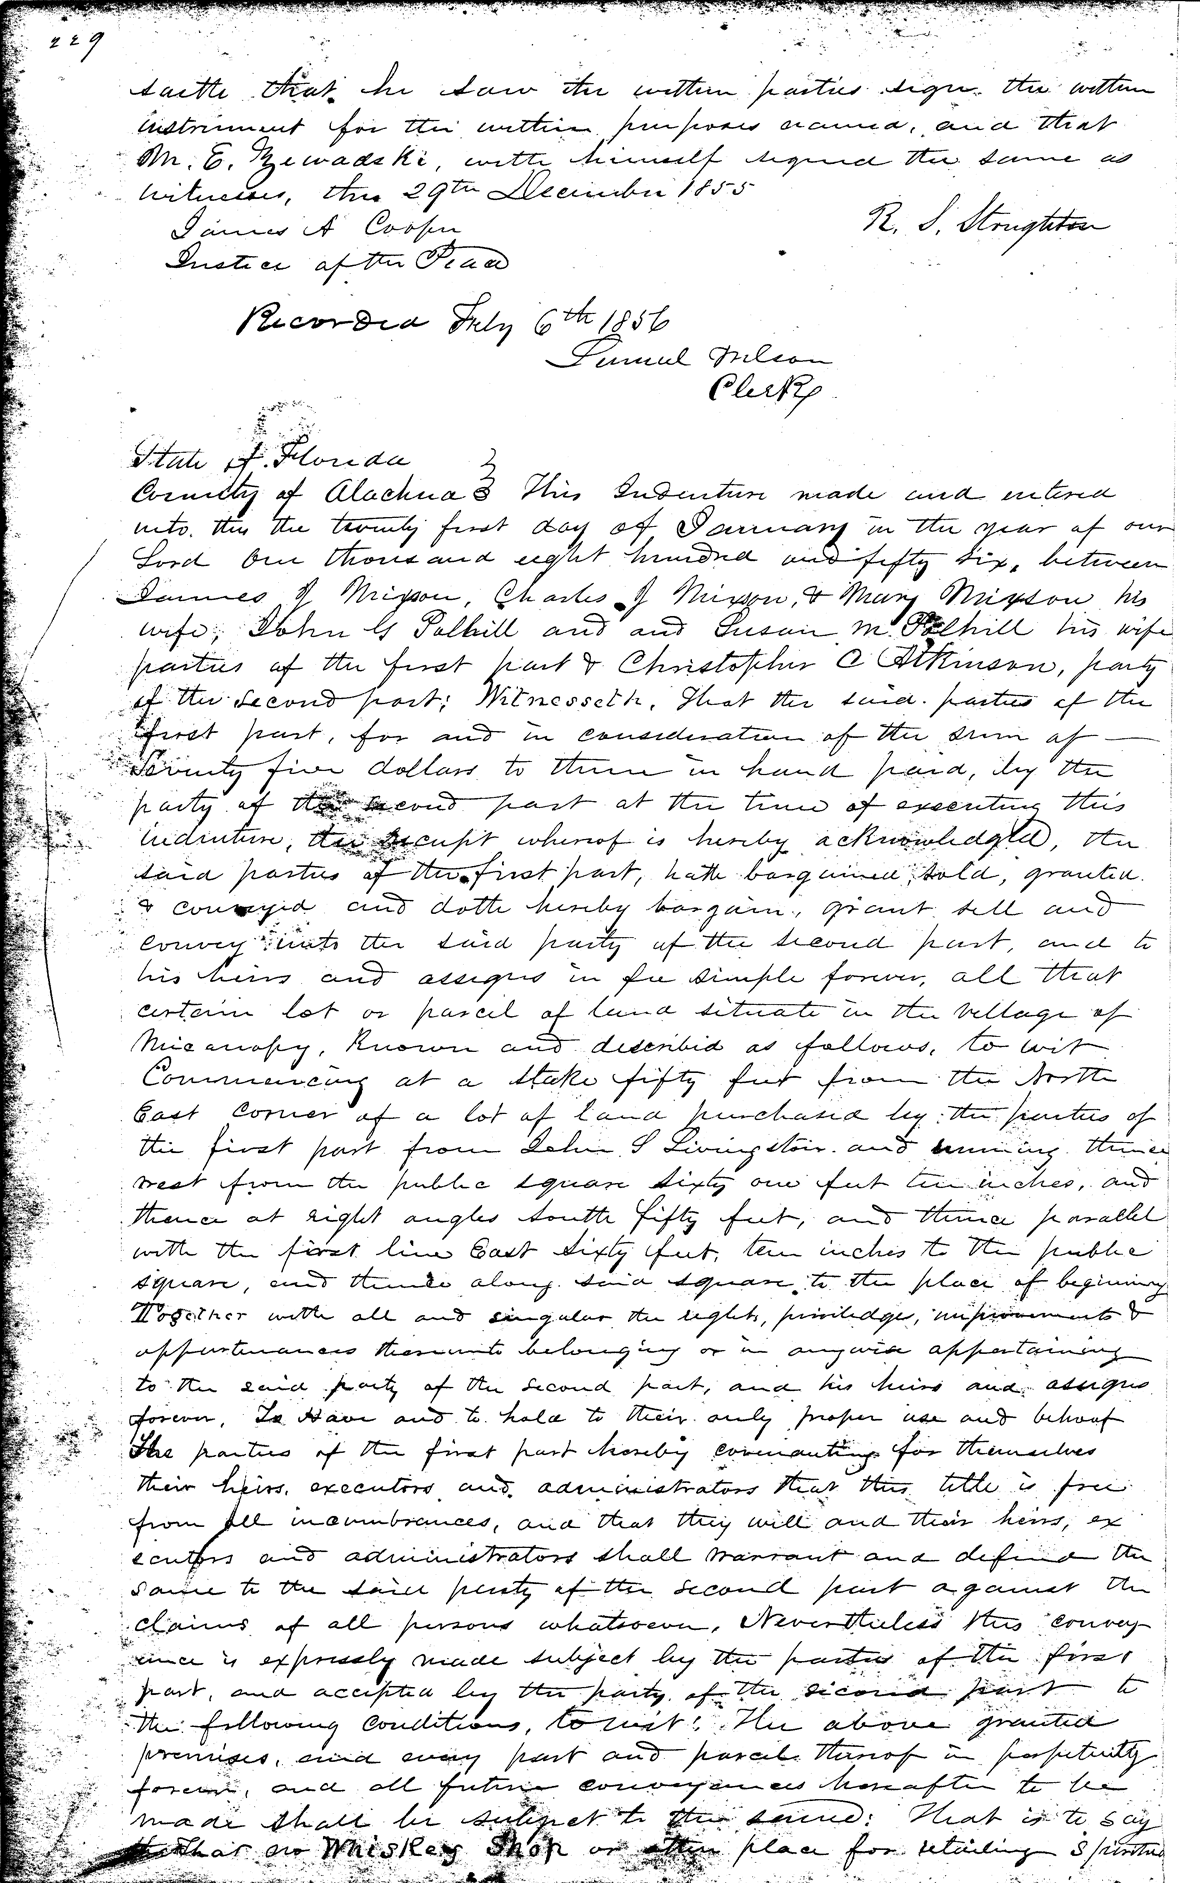 229
saith that he saw the within parties sign the within
instrument for the within purposes named, and that
M. E. Zewadski, with himself signed the same as
witnesses, this 29th December 1855
R. S. Stoughton
James A Cooper
Justice of the Peace
Recorded July 6th 1856
Samuel
Clerk
State of Florida
County of Alachua } This Indenture made and entered
into this the twenty first day of January in the year of our
Lord One thousand eight hundred and fifty six, between
James J Mixson, Charles J Mixson, & Mary Mixson his
wife, John G Polhill and and Susan M Polhill his wife
parties of the first part & Christopher C Atkinson, party
of the second part; Witnesseth, That the said parties of the
first part, for and in consideration of the sum of —
Seventy five dollars to them in hand paid, by the
party of the second part at the time of executing this
indenture, the receipt whereof is hereby acknowledged, the
said parties of the first part, hath bargained, sold, granted
& conveyed and doth hereby bargain, grant sell and
convey unto the said party of the second part, and to
his heirs and assigns in fee simple forever, all that
certain lot or parcel of land situate in the village of
Micanopy, Known and described as follows, to wit
Commencing at a Stake fifty feet from the North
East Corner of a lot of land purchased by the parties of
the first part from John S Livingston and running thence
west from the public square sixty one feet ten inches, and
thence at right angles South fifty feet, and thence parallel
with the first line East Sixty feet, ten inches to the public
square, and thence along said square to the place of beginning
Together with all and singular the rights, priviledges, improvements &
appurtenances thereunto belonging or in anywise appertaining
to the said party of the second part, and his heirs and assigns
forever, To Have and to hold to their only proper use and behoof
The parties of the first part hereby covenanting for themselves
their heirs, executors and administrators that this title is free
from all incumbrances, and that they will and their heirs, ex
ecutors and administrators shall warrant and defend the
same to the said party of the second part against the
claims of all persons whatsoever, Nevertheless this convey
ance is expressly made subject by the parties of the first
part, and accepted by the party of the second part to
the following conditions, to wit: The above granted
premises, and every part and parcel thereof in perpetuity
forever, and all future conveyances hereafter to be
made shall be subject to the same: That is to say
that no Whiskey Shop or other place for retailing Spiritus